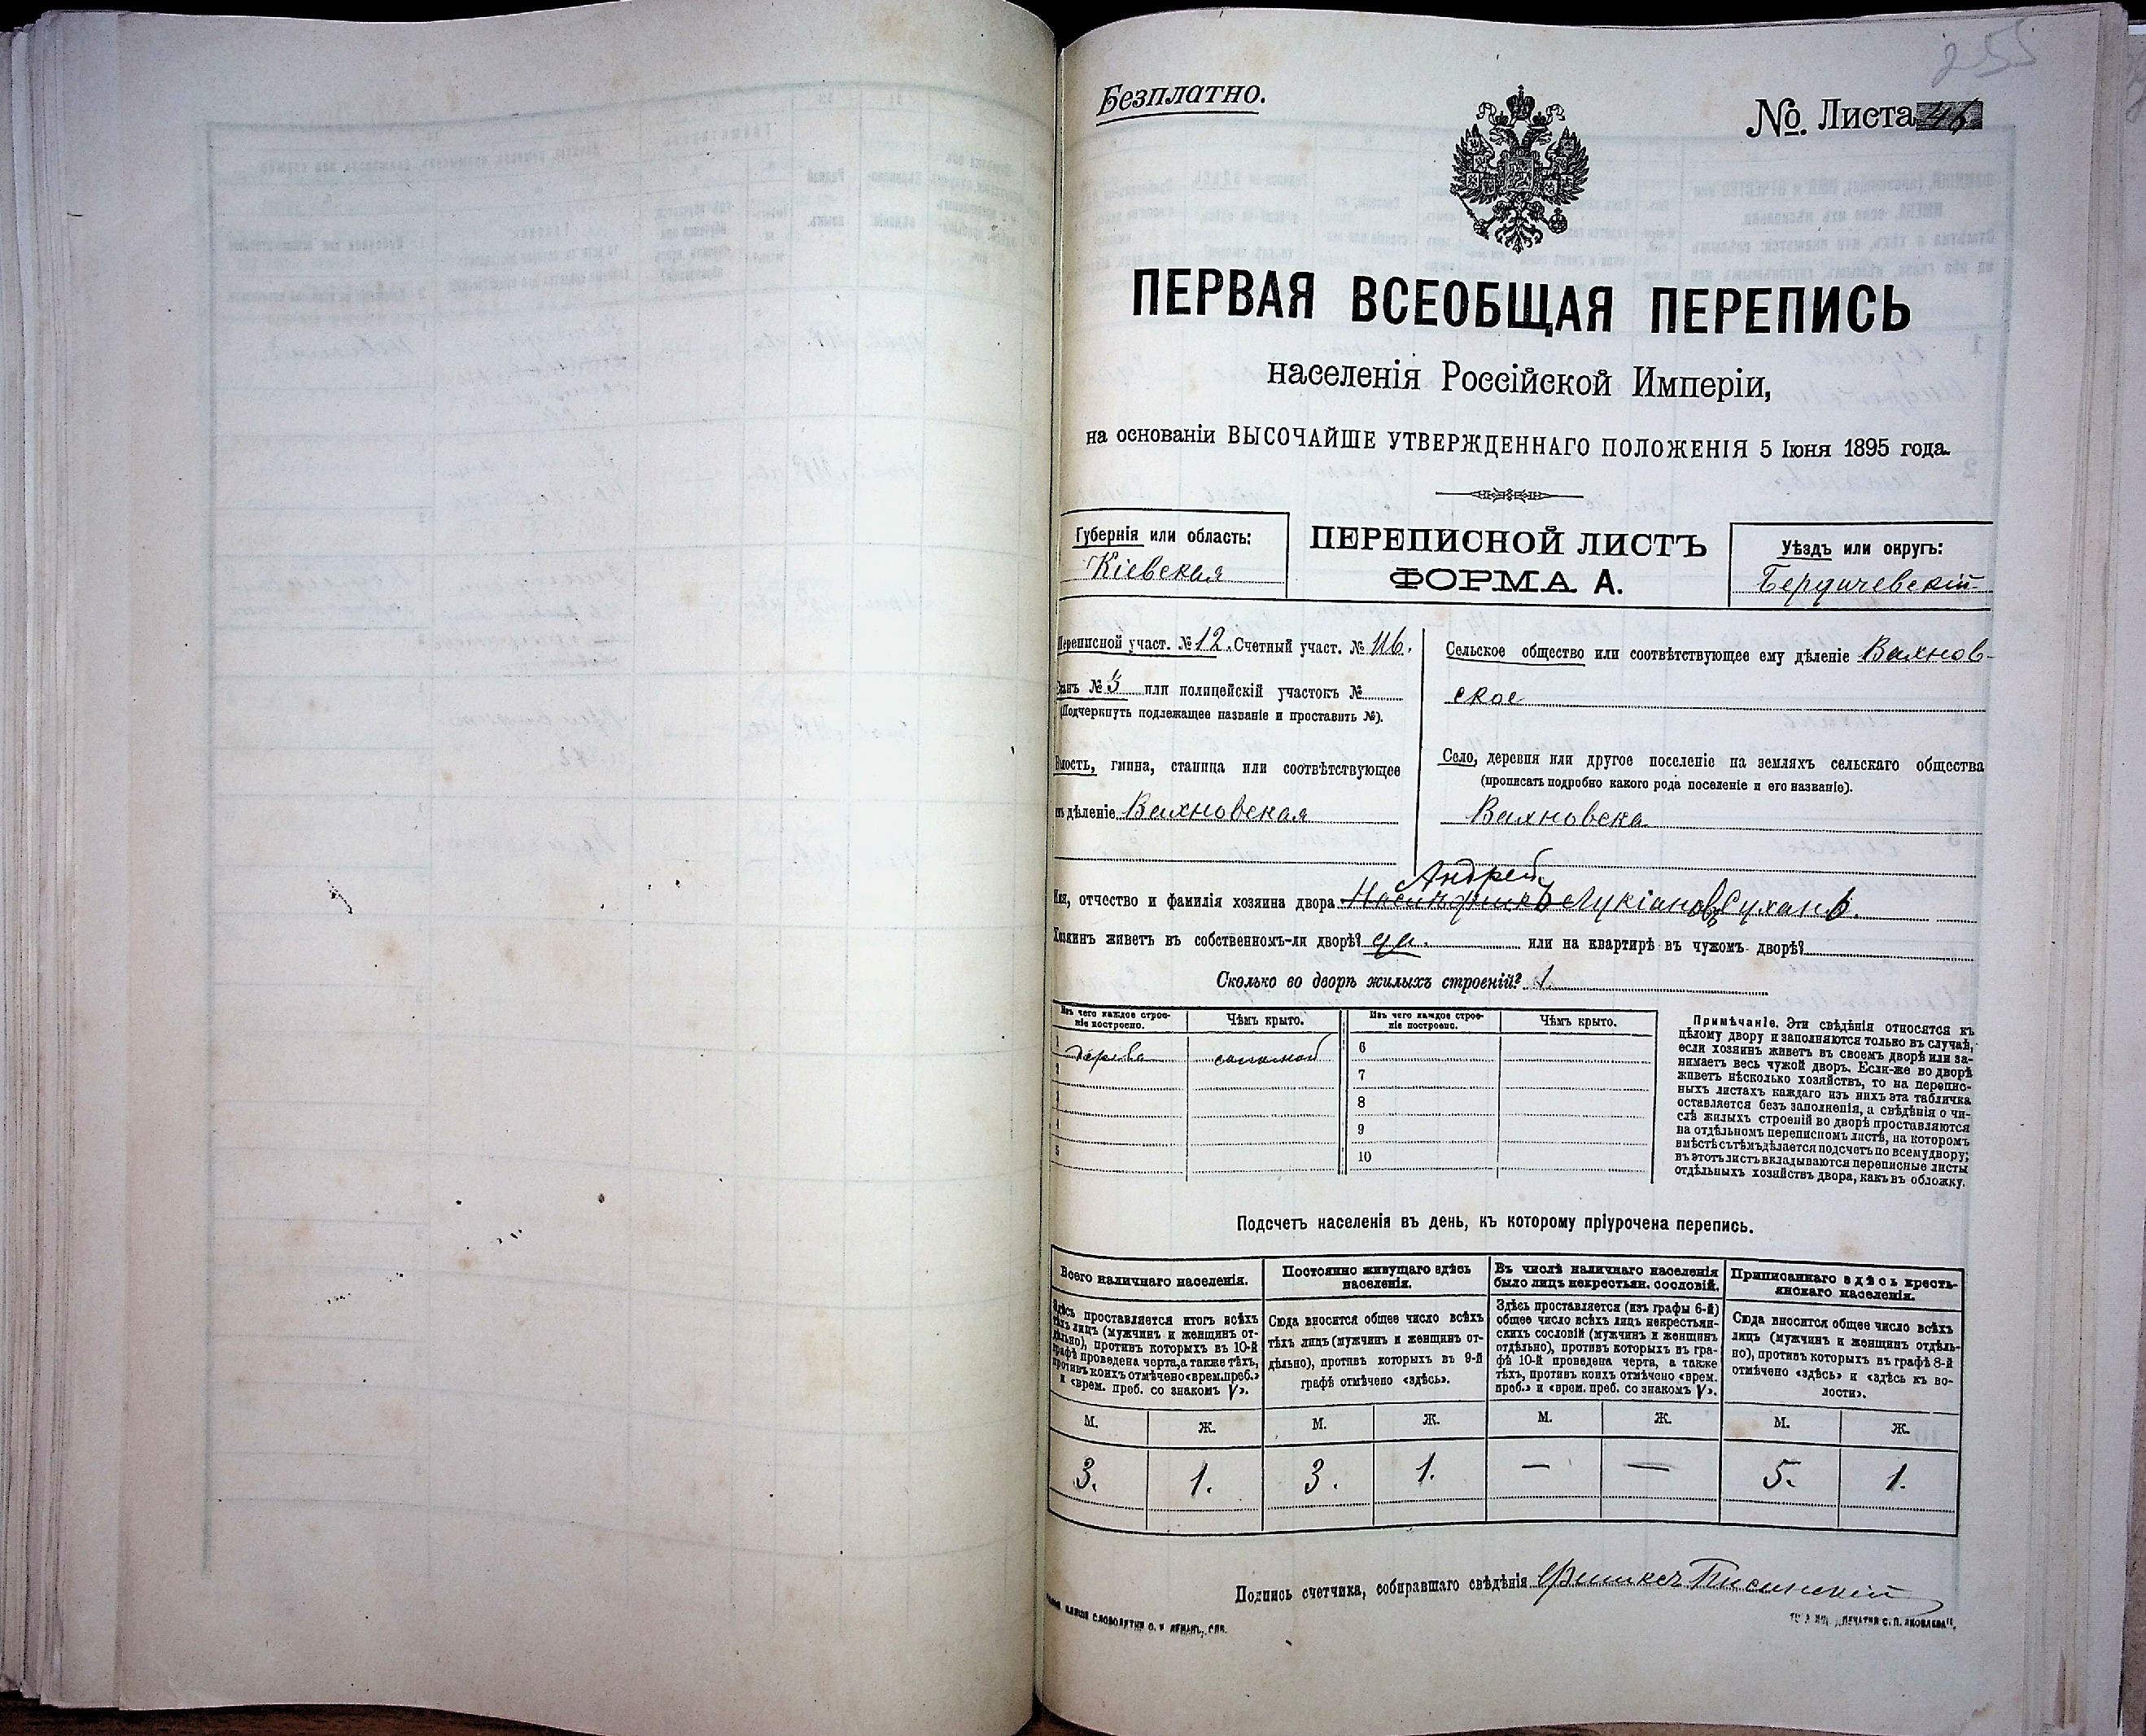 255
Безплатно.
№. Листа 46
ПЕРВАЯ ВСЕОБЩАЯ ПЕРЕПИСЬ
населенія Россійской Имперіи,
на основаніи ВЫСОЧАЙШЕ УТВЕРЖДЕННАГО ПОЛОЖЕНІЯ 5 Іюня 1895 года.
Губернія или область:
Кіевская
ПЕРЕПИСНОЙ ЛИСТЪ
ФОРМА А.
Уѣздъ или округъ:
Бердичевскій
Переписной участ. № 12. Счетный участ. № 116.
Станъ № 3 или полицейскій участокъ №
(Подчеркнуть подлежащее названіе и проставить №).
Волость, гмина, станица или соотвѣтствующее
имъ дѣленіе Вахновская
Сельское общество или соотвѣтствующее ему дѣленіе Вахнов-
ское
Село, деревня или другое поселеніе на земляхъ сельскаго общества
(прописать подробно какого рода поселеніе и его названіе).
Вахновска
Андрей
Имя, отчество и фамилія хозяина двора Лукіановъ Сухань.
Хозяинъ живетъ въ собственномъ-ли дворѣ? да. или на квартирѣ въ чужомъ дворѣ?
Сколько во дворѣ жилыхъ строеній? 1.
Изъ чего каждое строе-
ніе построено.
Чѣмъ крыто.
Изъ чего каждое строе-
ніе построено.
Чѣмъ крыто.
1 дерева соломой
2
3
4
5
6
7
8
9
10
Примѣчаніе. Эти свѣдѣнія относятся къ
цѣлому двору и заполняются только въ случаѣ,
если хозяинъ живетъ въ своемъ дворѣ или за-
нимаетъ весь чужой дворъ. Если-же во дворѣ
живетъ нѣсколько хозяйствъ, то на перепис-
ныхъ листахъ каждаго изъ нихъ эта табличка
оставляется безъ заполненія, а свѣдѣнія о чи-
слѣ жилыхъ строеній во дворѣ проставляются
на отдѣльномъ переписномъ листѣ, на которомъ
вмѣстѣ съ тѣмъ дѣлается подсчетъ по всему двору;
въ этотъ листъ вкладываются переписные листы
отдѣльныхъ хозяйствъ двора, какъ въ обложку.
Подсчетъ населенія въ день, къ которому пріурочена перепись.
Всего наличнаго населенія.
Здѣсь проставляется итогъ всѣхъ
тѣхъ лицъ (мужчинъ и женщинъ от-
дѣльно), противъ которыхъ въ 10-й
графѣ проведена черта, а также тѣхъ,
противъ коихъ отмѣчено «врем. преб.»
и «врем. преб. со знакомъ V».
Постоянно живущаго здѣсь
населенія.
Сюда вносится общее число всѣхъ
тѣхъ лицъ (мужчинъ и женщинъ от-
дѣльно), противъ которыхъ въ 9-й
графѣ отмѣчено «здѣсь».
Въ числѣ наличнаго населенія
было лицъ некрестьян. сословій.
Здѣсь проставляется (изъ графы 6-й)
общее число всѣхъ лицъ некрестьян-
скихъ сословій (мужчинъ и женщинъ
отдѣльно), противъ которыхъ въ гра-
фѣ 10-й проведена черта, а также
тѣхъ, противъ коихъ отмѣчено «врем.
преб.» и «врем. преб. со знакомъ V».
Приписаннаго здѣсь кресть-
янскаго населенія.
Сюда вносится общее число всѣхъ
лицъ (мужчинъ и женщинъ отдѣль-
но), противъ которыхъ въ графѣ 8-й
отмѣчено «здѣсь» и «здѣсь къ во-
лости».
М. Ж. М. Ж. М. Ж. М. Ж.
3. 1. 3. 1. — — 5. 1.
Подпись счетчика, собиравшаго свѣдѣнія